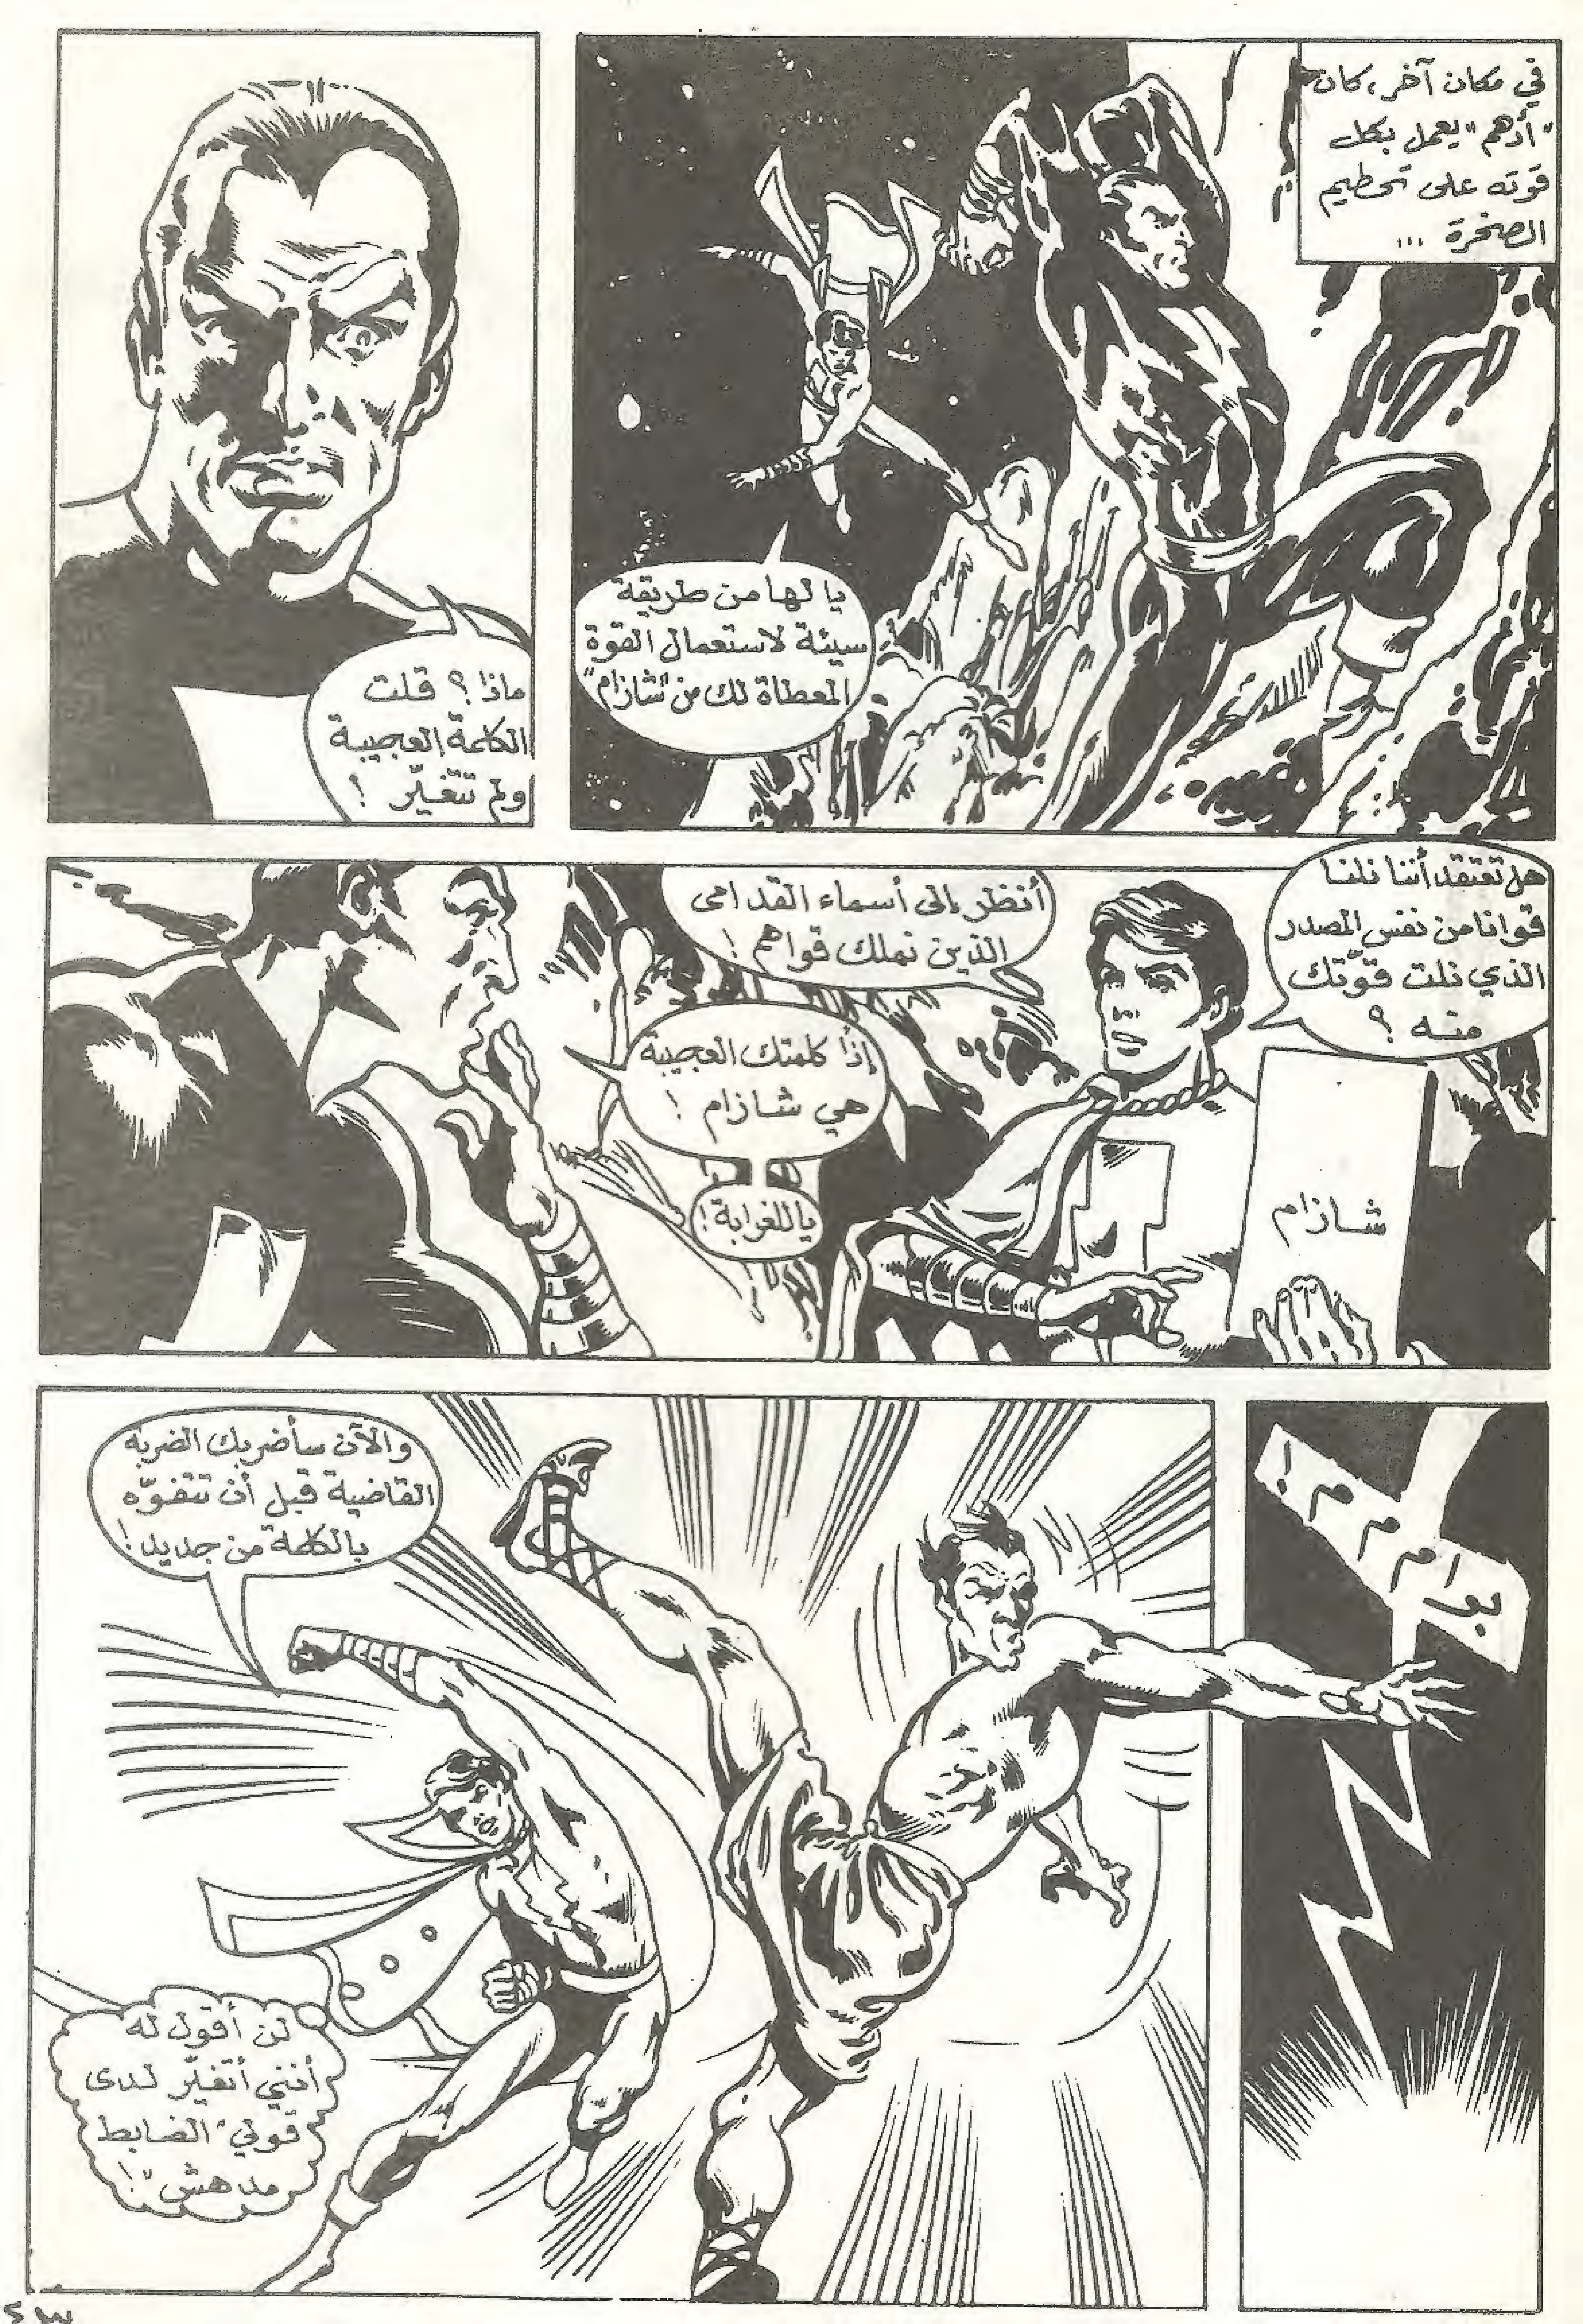 في مكان آخر، كان
"أدهم" يعمل بكل
قوته على تحطيم
الصخرة ...
يا لها من طريقة
سيئة لاستعمال القوة
المعطاة لك من "شازام"
ماذا؟ قلت
الكلمة العجيبة
ولم تتغيّر!
هل تعتقد أننا نلنا
قوانا من نفس المصدر
الذي نلت قوّتك
منه؟
أنظر إلى أسماء القدامى
الذين نملك قواهم!
إذاً كلمتك العجيبة
هي شازام!
ياللغرابة!
شازام
بوا م م م!
والآن سأضربك الضربه
القاضية قبل أن تتفوّه
بالكلمة من جديد!
لن أقول له
أنني أتغيّر لدى
قولي "الضابط
مدهش"!
٤٣